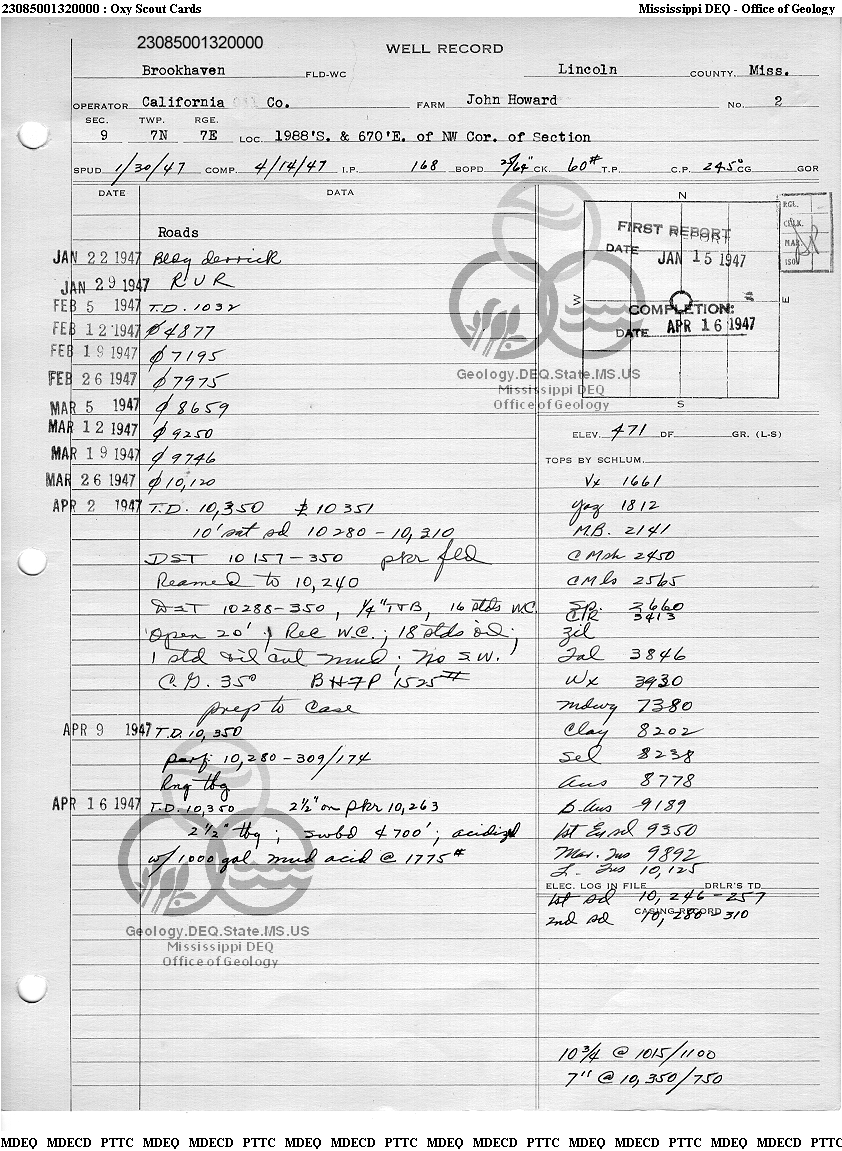 23085001320000 : Oxy Scout Cards
Mississippi DEQ - Office of Geology
23085001320000
WELL RECORD
Brookhaven FLD-WC Lincoln COUNTY. Miss.
OPERATOR California Co. FARM John Howard No. 2
SEC. TWP. RGE.
9 7N 7E LOC. 1988'S. & 670'E. of NW Cor. of Section
SPUD 1/30/47 COMP. 4/14/47 I.P. 168 BOPD 25/64" CK. 60# T.P. C.P. 245° CG GOR
DATE DATA
Roads
JAN 22 1947 Bldg derrick
JAN 29 1947 RUR
FEB 5 1947 T.D. 1032
FEB 12 1947 ø 4877
FEB 19 1947 ø 7195
FEB 26 1947 ø 7975
MAR 5 1947 ø 8659
MAR 12 1947 ø 9250
MAR 19 1947 ø 9746
MAR 26 1947 ø 10,120
APR 2 1947 T.D. 10,350 10351
10' sat sd 10280-10,310
DST 10157-350 pkr fld
Reamed to 10,240
DST 10288-350, 1/4" TVB, 16 stds W.C.
Open 20'; Rec W.C.; 18 stds oil;
1 std oil cut mud; No S.W.
C.G. 35° BHFP 1525#
prep to case
APR 9 1947 T.D. 10,350
perf: 10,280-309/174
Rng tbg
APR 16 1947 T.D. 10,350 2½" on pkr 10,263
2½" tbg; swbd 4700'; acidized
w/1000 gal mud acid @ 1775#
N
W
E
S
FIRST REPORT
DATE JAN 15 1947
COMPLETION:
DATE APR 16 1947
RGL.
CHK.
MAP
ISO
Geology.DEQ.State.MS.US
Mississippi DEQ
Office of Geology
ELEV. 471 DF GR. (L-S)
TOPS BY SCHLUM.
Vx 1661
Yaz 1812
M.B. 2141
CMsh 2450
CMls 2565
Sp. 2660
C/R 3413
Zil
Tal 3846
Wx 3930
Mdwy 7380
Clay 8202
Sel 8238
Aus 8778
B. Aus 9189
1st Eu sd 9350
Mar. Tus 9892
L. Tus 10,125
ELEC. LOG IN FILE DRLR'S TD
1st sd 10,246-257
CASING RECORD
2nd sd 10,280-310
Geology.DEQ.State.MS.US
Mississippi DEQ
Office of Geology
10 3/4 @ 1015/1100
7" @ 10,350/750
MDEQ MDECD PTTC MDEQ MDECD PTTC MDEQ MDECD PTTC MDEQ MDECD PTTC MDEQ MDECD PTTC MDEQ MDECD PTTC